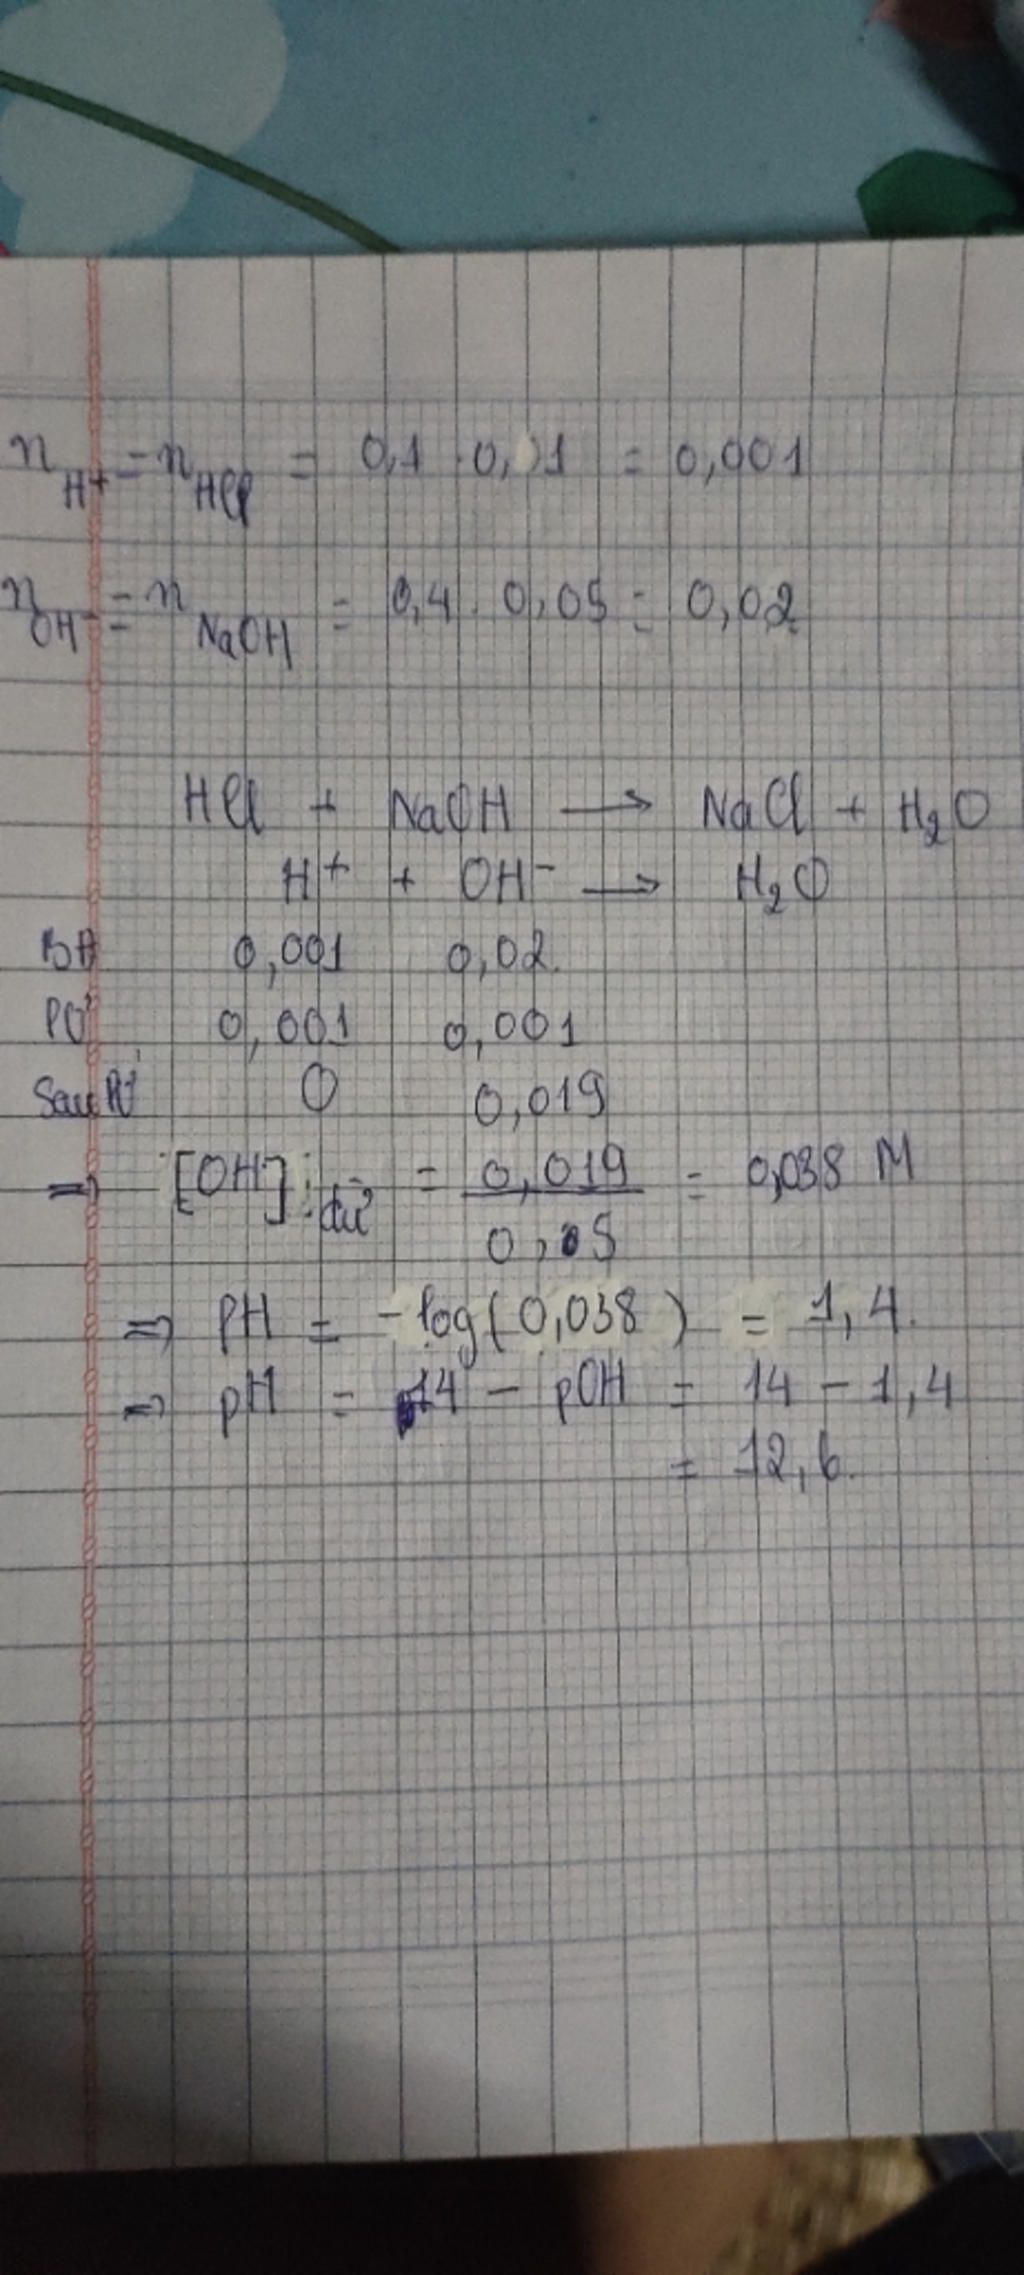 n_H+ = n_HCl = 0,1 . 0,01 = 0,001
n_OH- = n_NaOH = 0,4 . 0,05 = 0,02
HCl + NaOH → NaCl + H₂O
H⁺ + OH⁻ → H₂O
BĐ 0,001 0,02
PƯ 0,001 0,001
Sau PƯ 0 0,019
⇒ [OH⁻] dư = 0,019 / 0,5 = 0,038 M
⇒ pH = -log(0,038) = 1,4.
⇒ pH = 14 - pOH = 14 - 1,4
= 12,6.